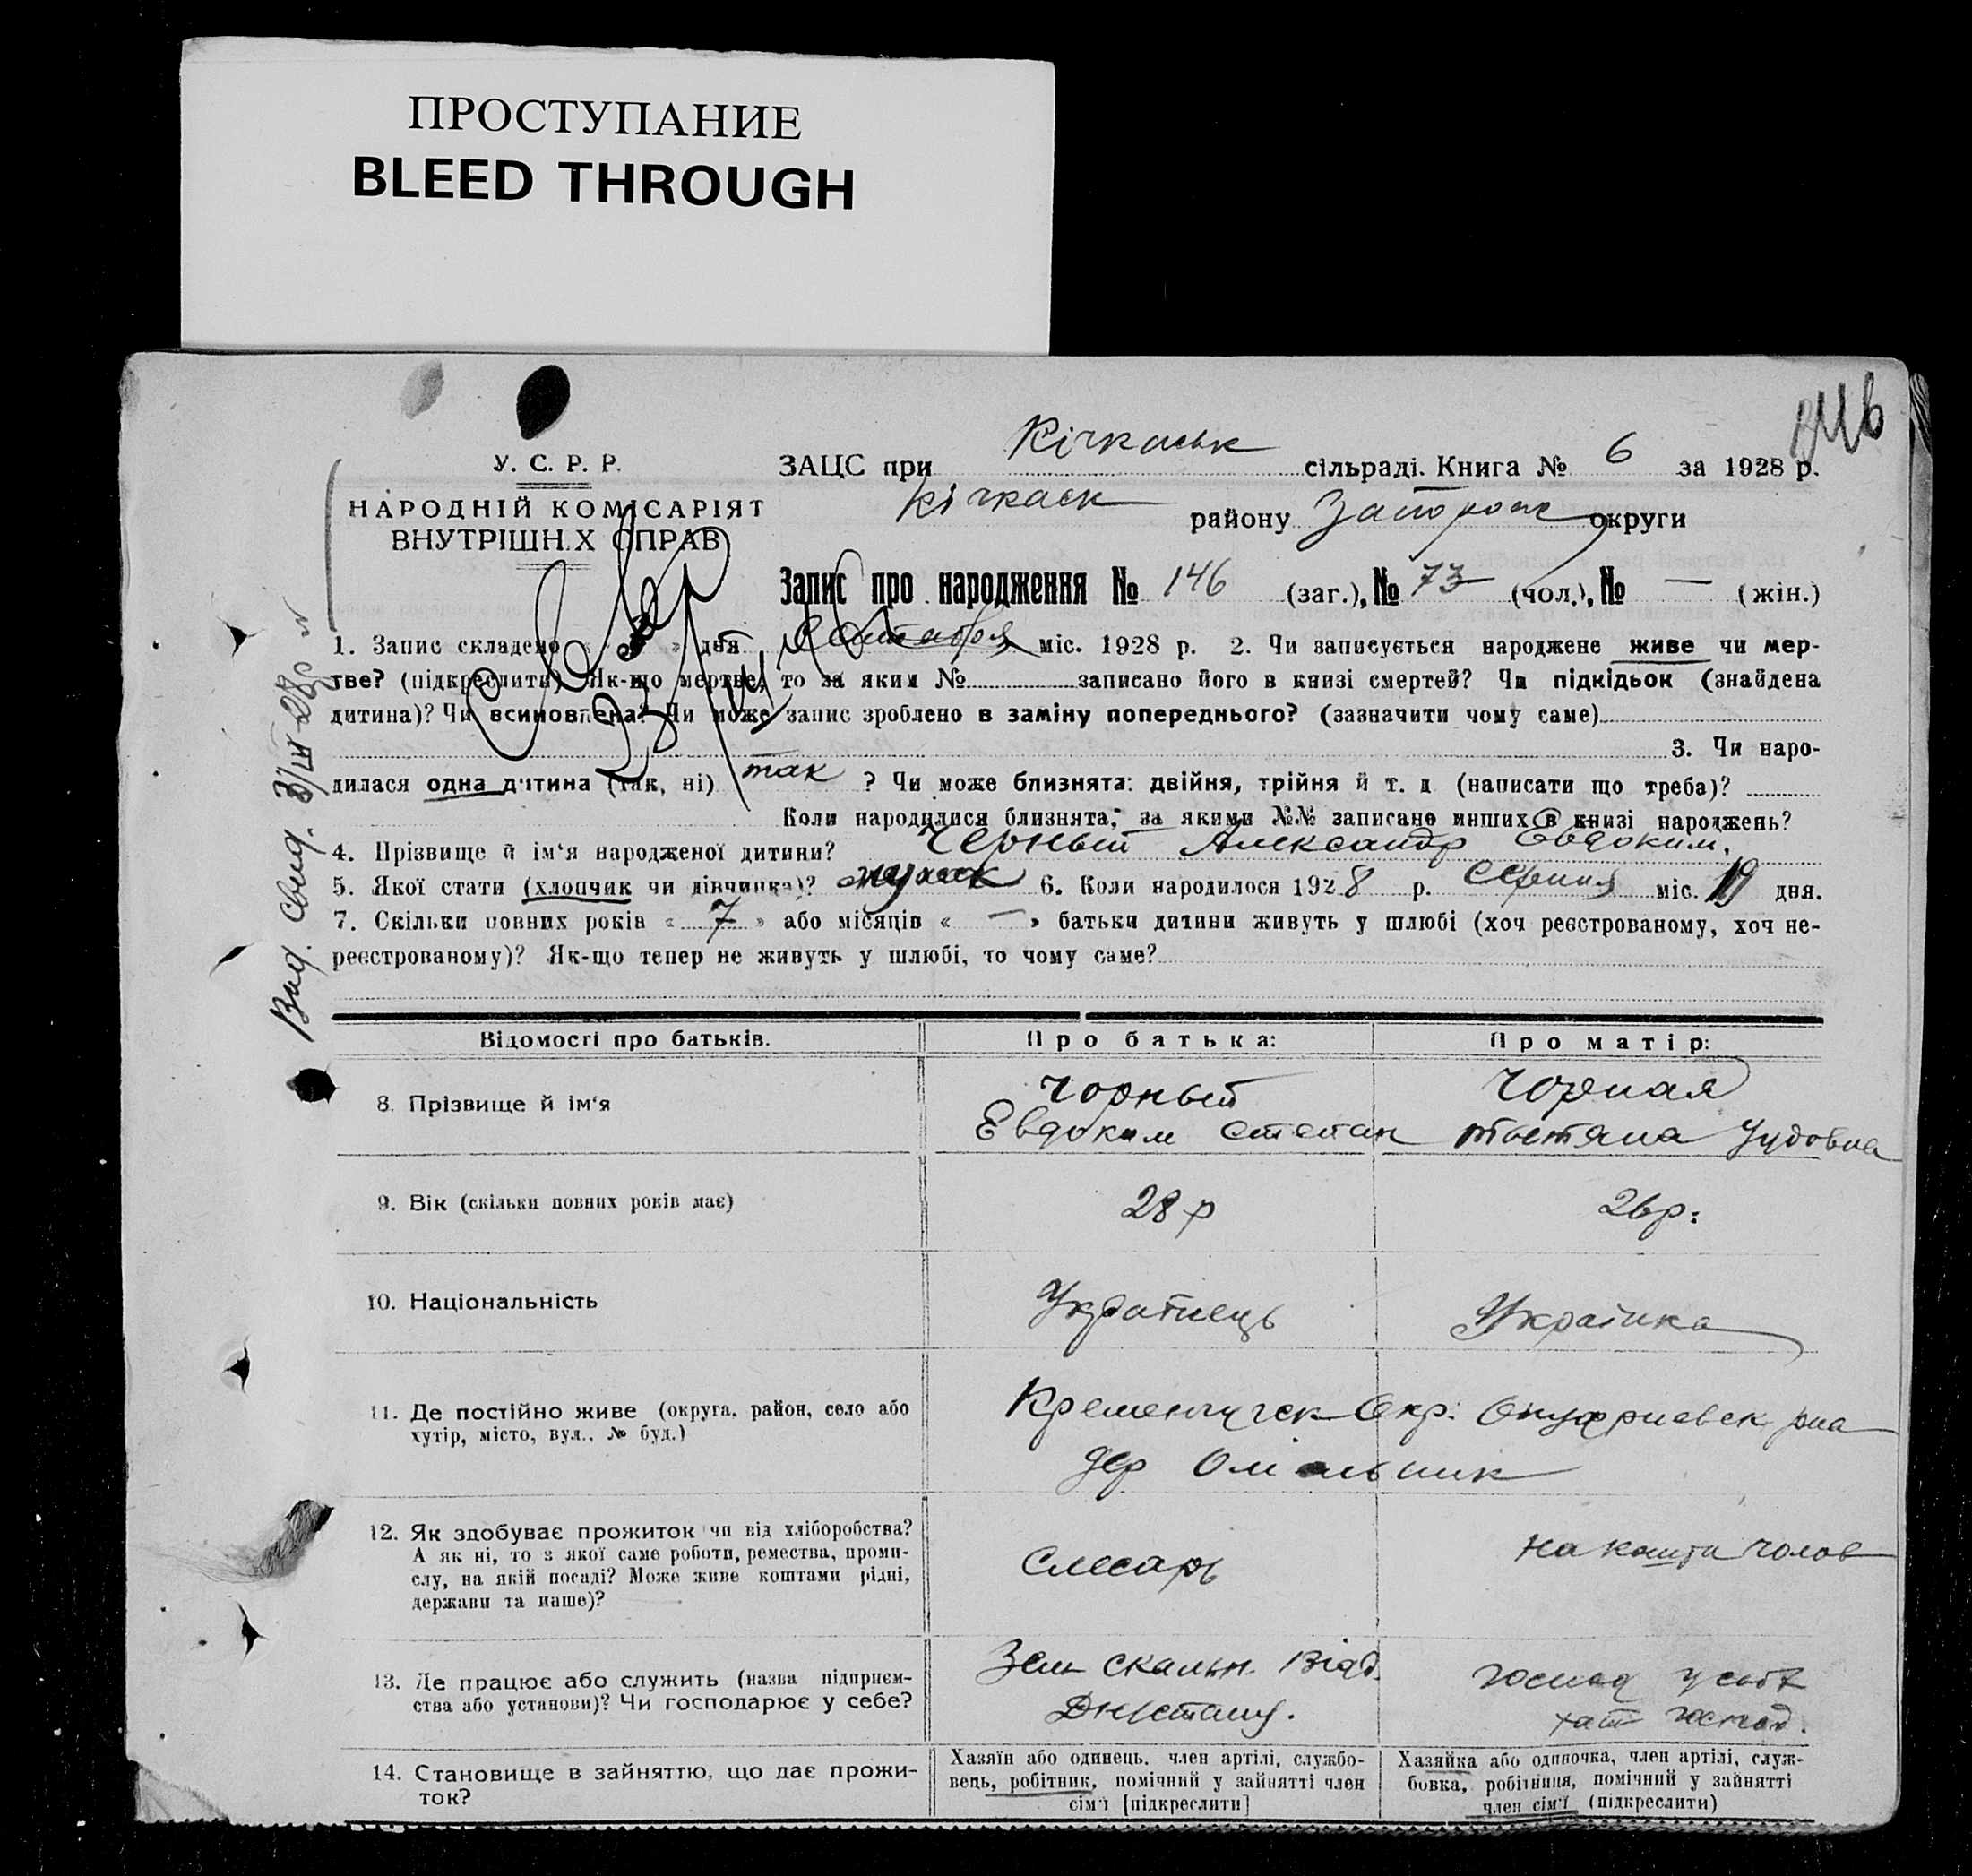 ПРОСТУПАНИЕ
BLEED THROUGH
У. С. Р. Р.
НАРОДНІЙ КОМІСАРІЯТ
ВНУТРІШН.Х СПРАВ
ЗАЦС при Кічкаськ сільраді. Книга № 6 за 1928 р.
Кічкаск району Запорож округи
Запис про народження № 146 (заг.), № 73 (чол.), № — (жін.)
1. Запис складено « » дня міс. 1928 р. 2. Чи записується народжене живе чи мер-
тве? (підкреслити) Як-що мертве, то за яким № записано його в книзі смертей? Чи підкідьок (знайдена
дитина)? Чи всиновлена? Чи може запис зроблено в заміну попереднього? (зазначити чому саме)
3. Чи наро-
дилася одна дитина (так, ні) так ? Чи може близнята: двійня, трійня й т. д (написати що треба)?
Коли народилися близнята, за якими №№ записано инших в книзі народжень?
4. Прізвище й ім'я народженої дитини? Черный Александр Евдоким.
5. Якої стати (хлопчик чи дівчинка)? 6. Коли народилося 1928 р. серпня міс. 19 дня.
7. Скільки повних років « 7 » або місяців « — » батьки дитини живуть у шлюбі (хоч реєстрованому, хоч не-
реєстрованому)? Як-що тепер не живуть у шлюбі, то чому саме?
Вид. свид. 3/III-28р
Відомості про батьків. Про батька: Про матір:
8. Прізвище й ім'я
Чорный Чорная
Евдоким Степан Татяна
9. Вік (скільки повних років має) 28 р 26 р:
10. Національність Українець Українка
11. Де постійно живе (округа, район, село або
хутір, місто, вул., № буд.)
Кременчугск Окр. Онуфриевск рна
дер Омельник
12. Як здобуває прожиток чи від хліборобства?
А як ні, то з якої саме роботи, ремества, проми-
слу, на якій посаді? Може живе коштами рідні,
держави та инше)?
Слесарь на кошти чолов
13. Де працює або служить (назва підприєм-
ства або установи)? Чи господарює у себе?
Зем скальн. Від.
господ
хат господ.
14. Становище в зайняттю, що дає прожи-
ток?
Хазяїн або одинець, член артілі, службо-
вець, робітник, помічний у зайнятті член
сім'ї [підкреслити]
Хазяйка або одиночка, член артілі, служ-
бовка, робітниця, помічний у зайнятті
член сім'ї (підкреслити)